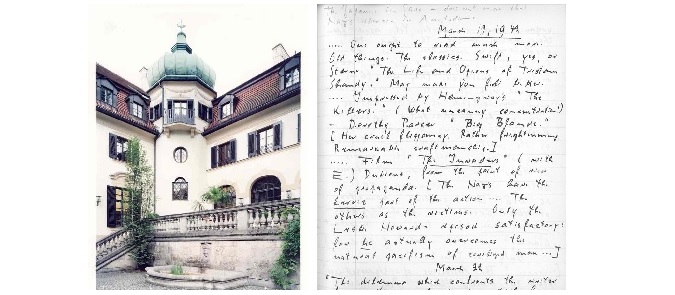 March
.... One ought to read much more.
Old things. The classics. Swift, yes, or
Sterne "The Life and Opinions of Tristram
Shandy." May make you feel
.... Impressed by Hemingway's "The
Killers." (What uncanny concentration!)
Dorothy Parker "Big Blonde."
[Her cruel flippancy. Rather frightening
Remarkable craftsmanship.]
.... Film "The Invaders" (with
E.) Dubious, from the point of view
of propaganda. [The Nazis have the
heroic part of the action ... The
others as the victims. Only the
Leslie Howard satisfactory:
for he actually overcomes the
natural pacifism of civilized man ...]
March
"The dilemma which confronts the writer